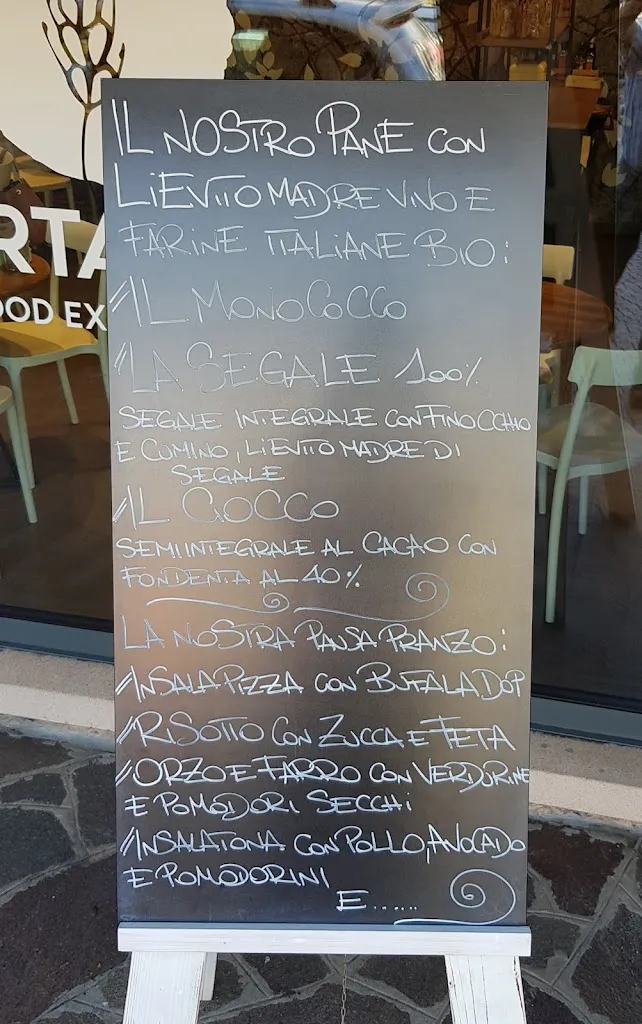 RTA
OOD EX
IL NOSTRO PANE CON
LIEVITO MADRE VIVO E
FARINE ITALIANE BIO:
"IL MONOCOCCO
"LA SEGALE 100%
SEGALE INTEGRALE CON FINOCCHIO
E CUMINO, LIEVITO MADRE DI
SEGALE
"IL COCCO
SEMINTEGRALE AL CACAO CON
FONDENTA AL 40%
LA NOSTRA PAUSA PRANZO:
"INSALAPIZZA CON BUFALA DOP
"RISOTTO CON ZUCCA E FETA
"ORZO E FARRO CON VERDURINE
E POMODORI SECCHI
"INSALATONA CON POLLO, AVOCADO
E POMODORINI
E......